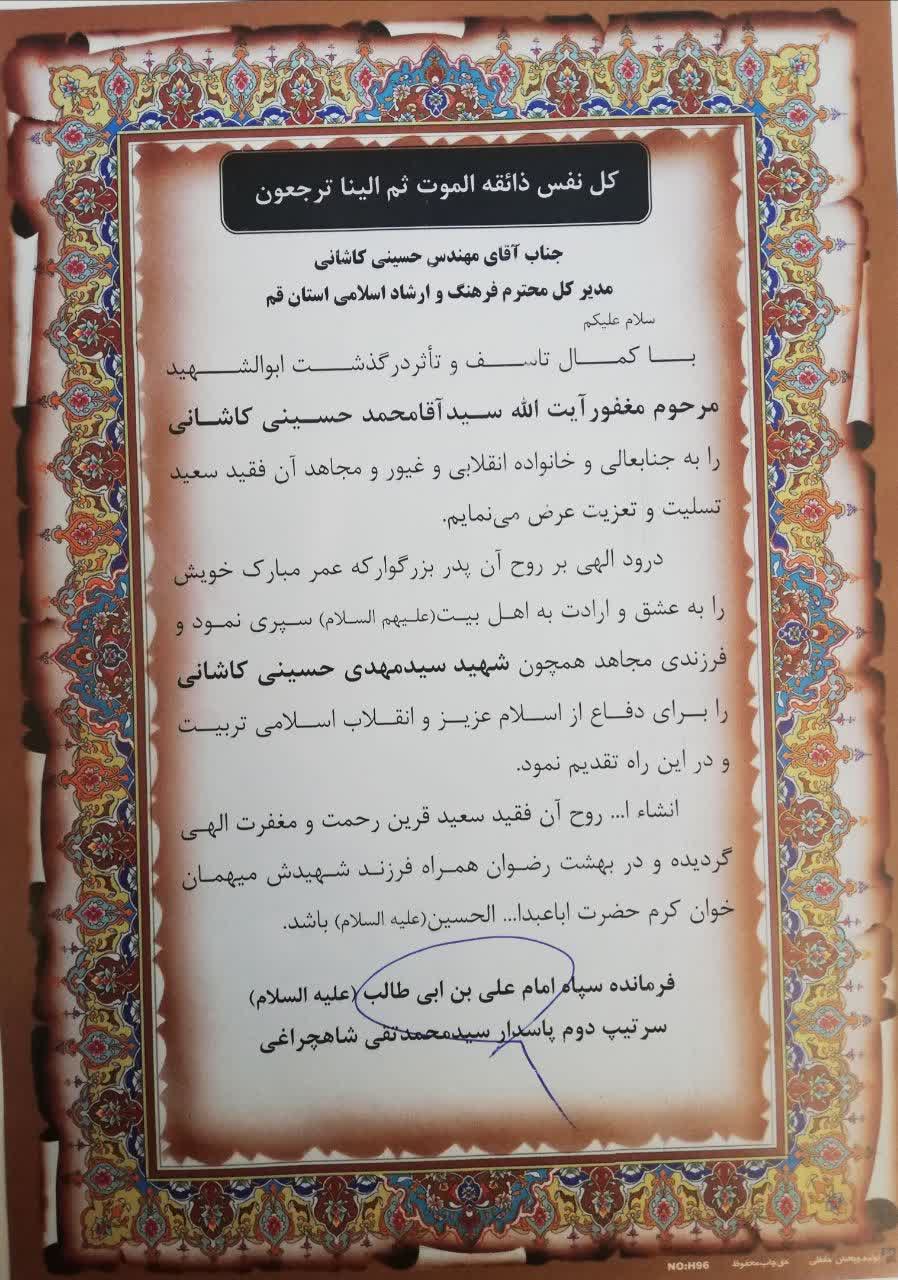 کل نفس ذائقه الموت ثم الینا ترجعون
جناب آقای مهندس حسینی کاشانی
مدیر کل محترم فرهنگ و ارشاد اسلامی استان قم
سلام علیکم
با کمال تاسف و تأثر درگذشت ابوالشهید
مرحوم مغفور آیت الله سید آقامحمد حسینی کاشانی
را به جنابعالی و خانواده انقلابی و غیور و مجاهد آن فقید سعید
تسلیت و تعزیت عرض می‌نمایم.
درود الهی بر روح آن پدر بزرگوار که عمر مبارک خویش
را به عشق و ارادت به اهل بیت(علیهم السلام) سپری نمود و
فرزندی مجاهد همچون شهید سیدمهدی حسینی کاشانی
را برای دفاع از اسلام عزیز و انقلاب اسلامی تربیت
و در این راه تقدیم نمود.
انشاء ا... روح آن فقید سعید قرین رحمت و مغفرت الهی
گردیده و در بهشت رضوان همراه فرزند شهیدش میهمان
خوان کرم حضرت اباعبدا... الحسین(علیه السلام) باشد.
فرمانده سپاه امام علی بن ابی طالب (علیه السلام)
سرتیپ دوم پاسدار سیدمحمدتقی شاهچراغی
تولید و پخش حق چاپ محفوظ NO:H96